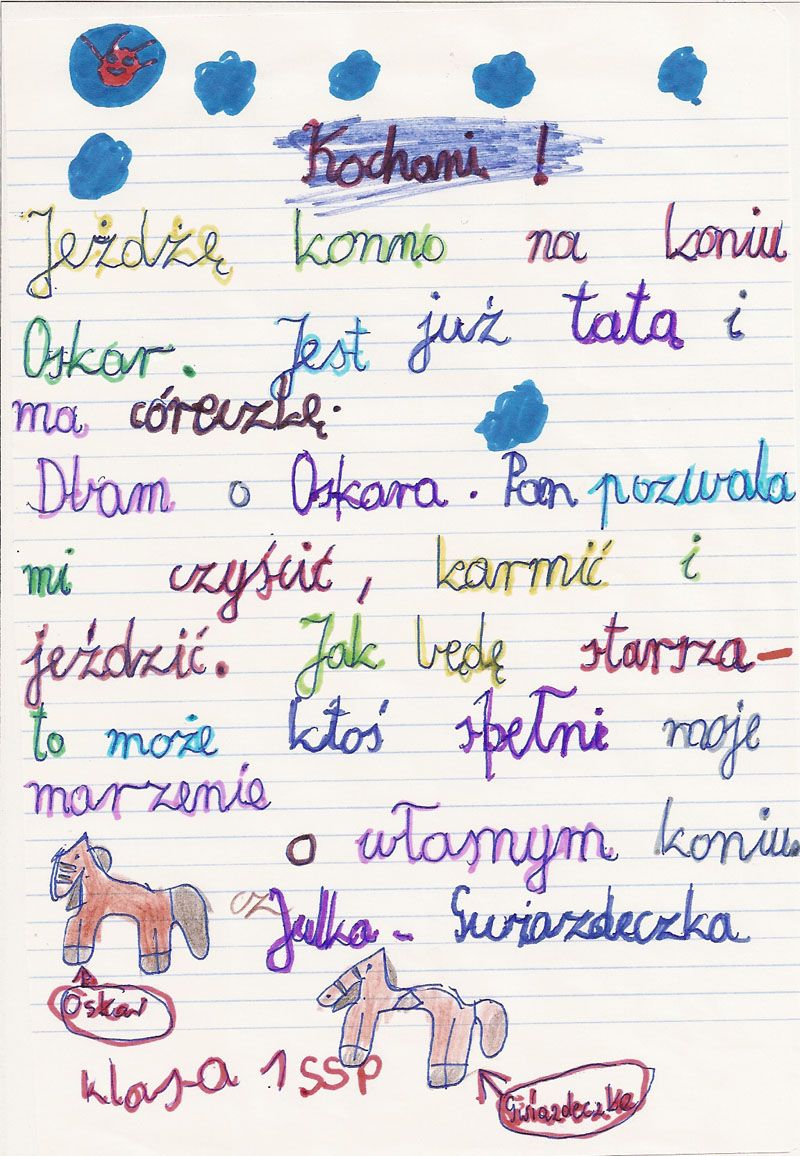 Kochani !
Jeżdżę konno na koniu
Oskar. Jest już tatą i
ma córeczkę.
Dbam o Oskara. Pan pozwala
mi czyścić, karmić i
jeździć. Jak będę starsza -
to może ktoś spełni moje
marzenie
o własnym koniu.
Julka - Gwiazdeczka
Oskar
klasa 1 SSP
Gwiazdeczka